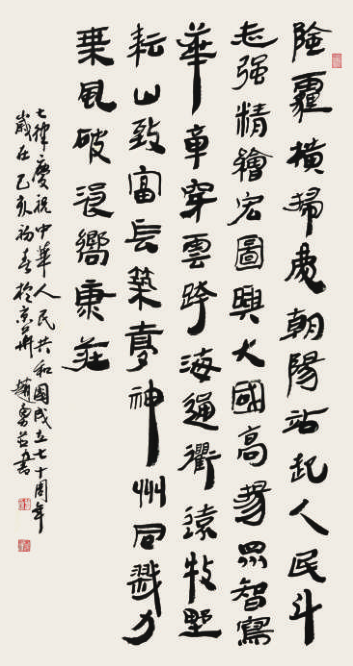 險霾橫掃處朝陽站起人民斗
志强精繪宏圖興大國高揚眾智寫
華章穿雲跨海通衢遠牧野
耘山致富長築夢神州同戮力
乘風破浪嚮康莊
七律慶祝中華人民共和国成立七十周年
歲在己亥初春於京華趙書